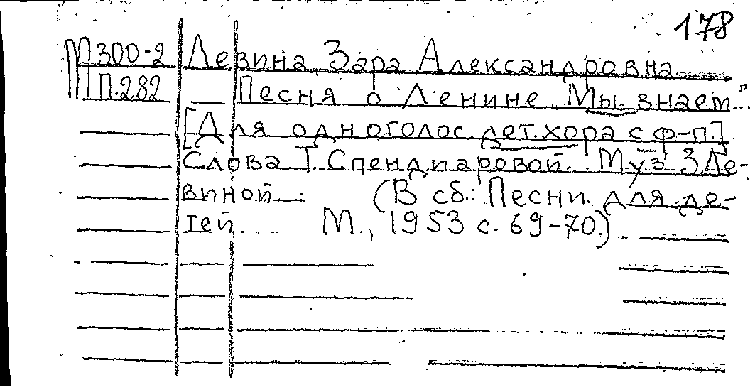 178
М300-2 Левина, Зара Александровна
П.282 Песня о Ленине „Мы знаем"
[Для одноголос. дет. хора с ф-п.]
Слова Т. Спендиаровой. Муз. З. Ле-
виной. (В сб.: Песни для де-
тей. М., 1953 с. 69-70.)